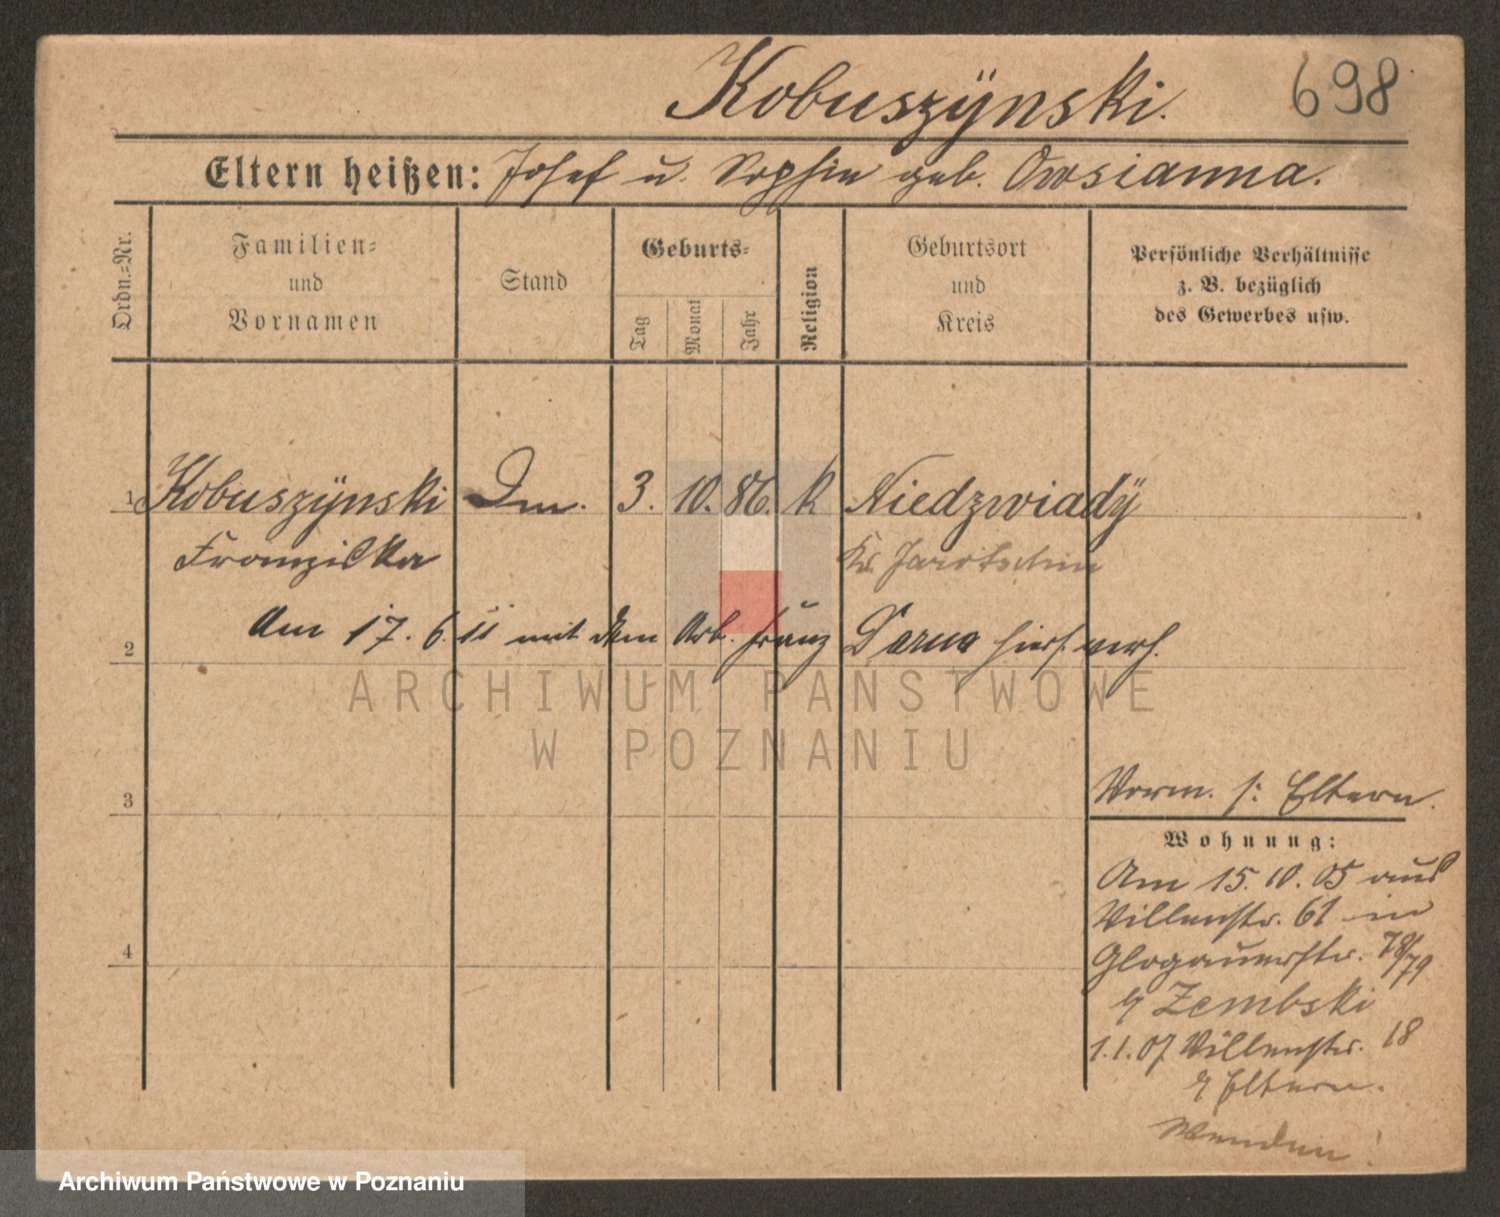 Kobuszÿnski. 698
Eltern heißen: Josef u. Sophie geb. Owsianna.
Ordn.=Nr.
Familien=
und
Vornamen
Stand
Geburts=
Tag
Monat
Jahr
Religion
Geburtsort
und
Kreis
Persönliche Verhältnisse
z. B. bezüglich
des Gewerbes usw.
1 Kobuszÿnski 3. 10. 86. k Niedzwiadÿ
Franziska Kr. Jarotschin
Am 17. 6. 11 mit dem Arb. Franz hiers. verh.
2
ARCHIWUM PAŃSTWOWE
W POZNANIU
3
4
Vorm. s: Eltern.
Wohnung:
Am 15. 10. 05 aus
Villenstr. 61 in
Glogauerstr. 78/79
b/ Zembski
1.1.07 Villenstr. 18
b/ Eltern.
Wenden!
Archiwum Państwowe w Poznaniu